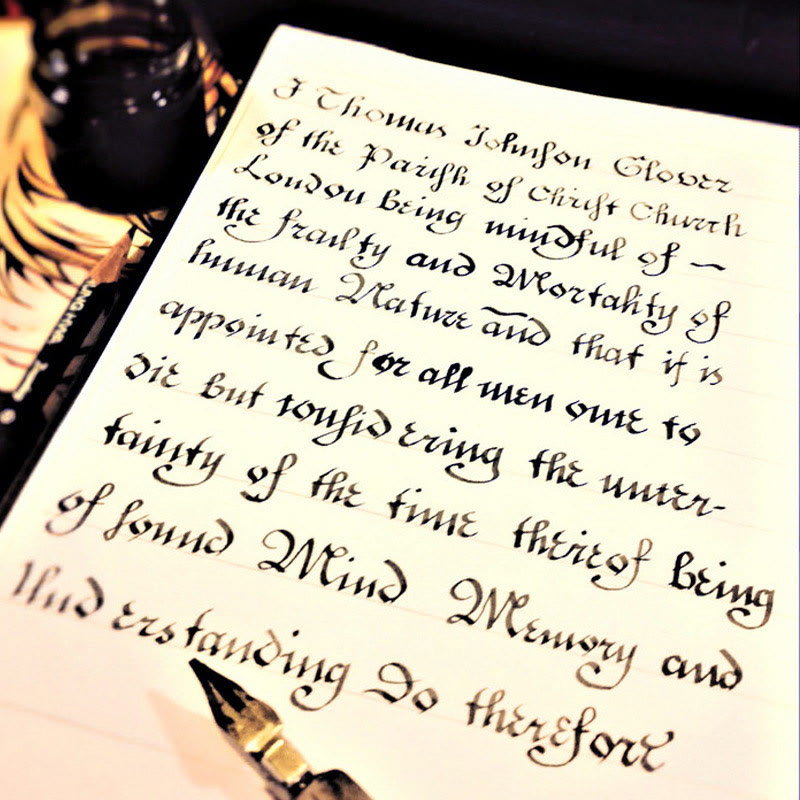 I Thomas Johnson Glover
of the Parish of Christ Church
London being mindful of ~
the frailty and Mortality of
human Nature and that it is
appointed for all men once to
die but considering the uncer-
tainty of the time thereof being
of sound Mind Memory and
Understanding Do therefore